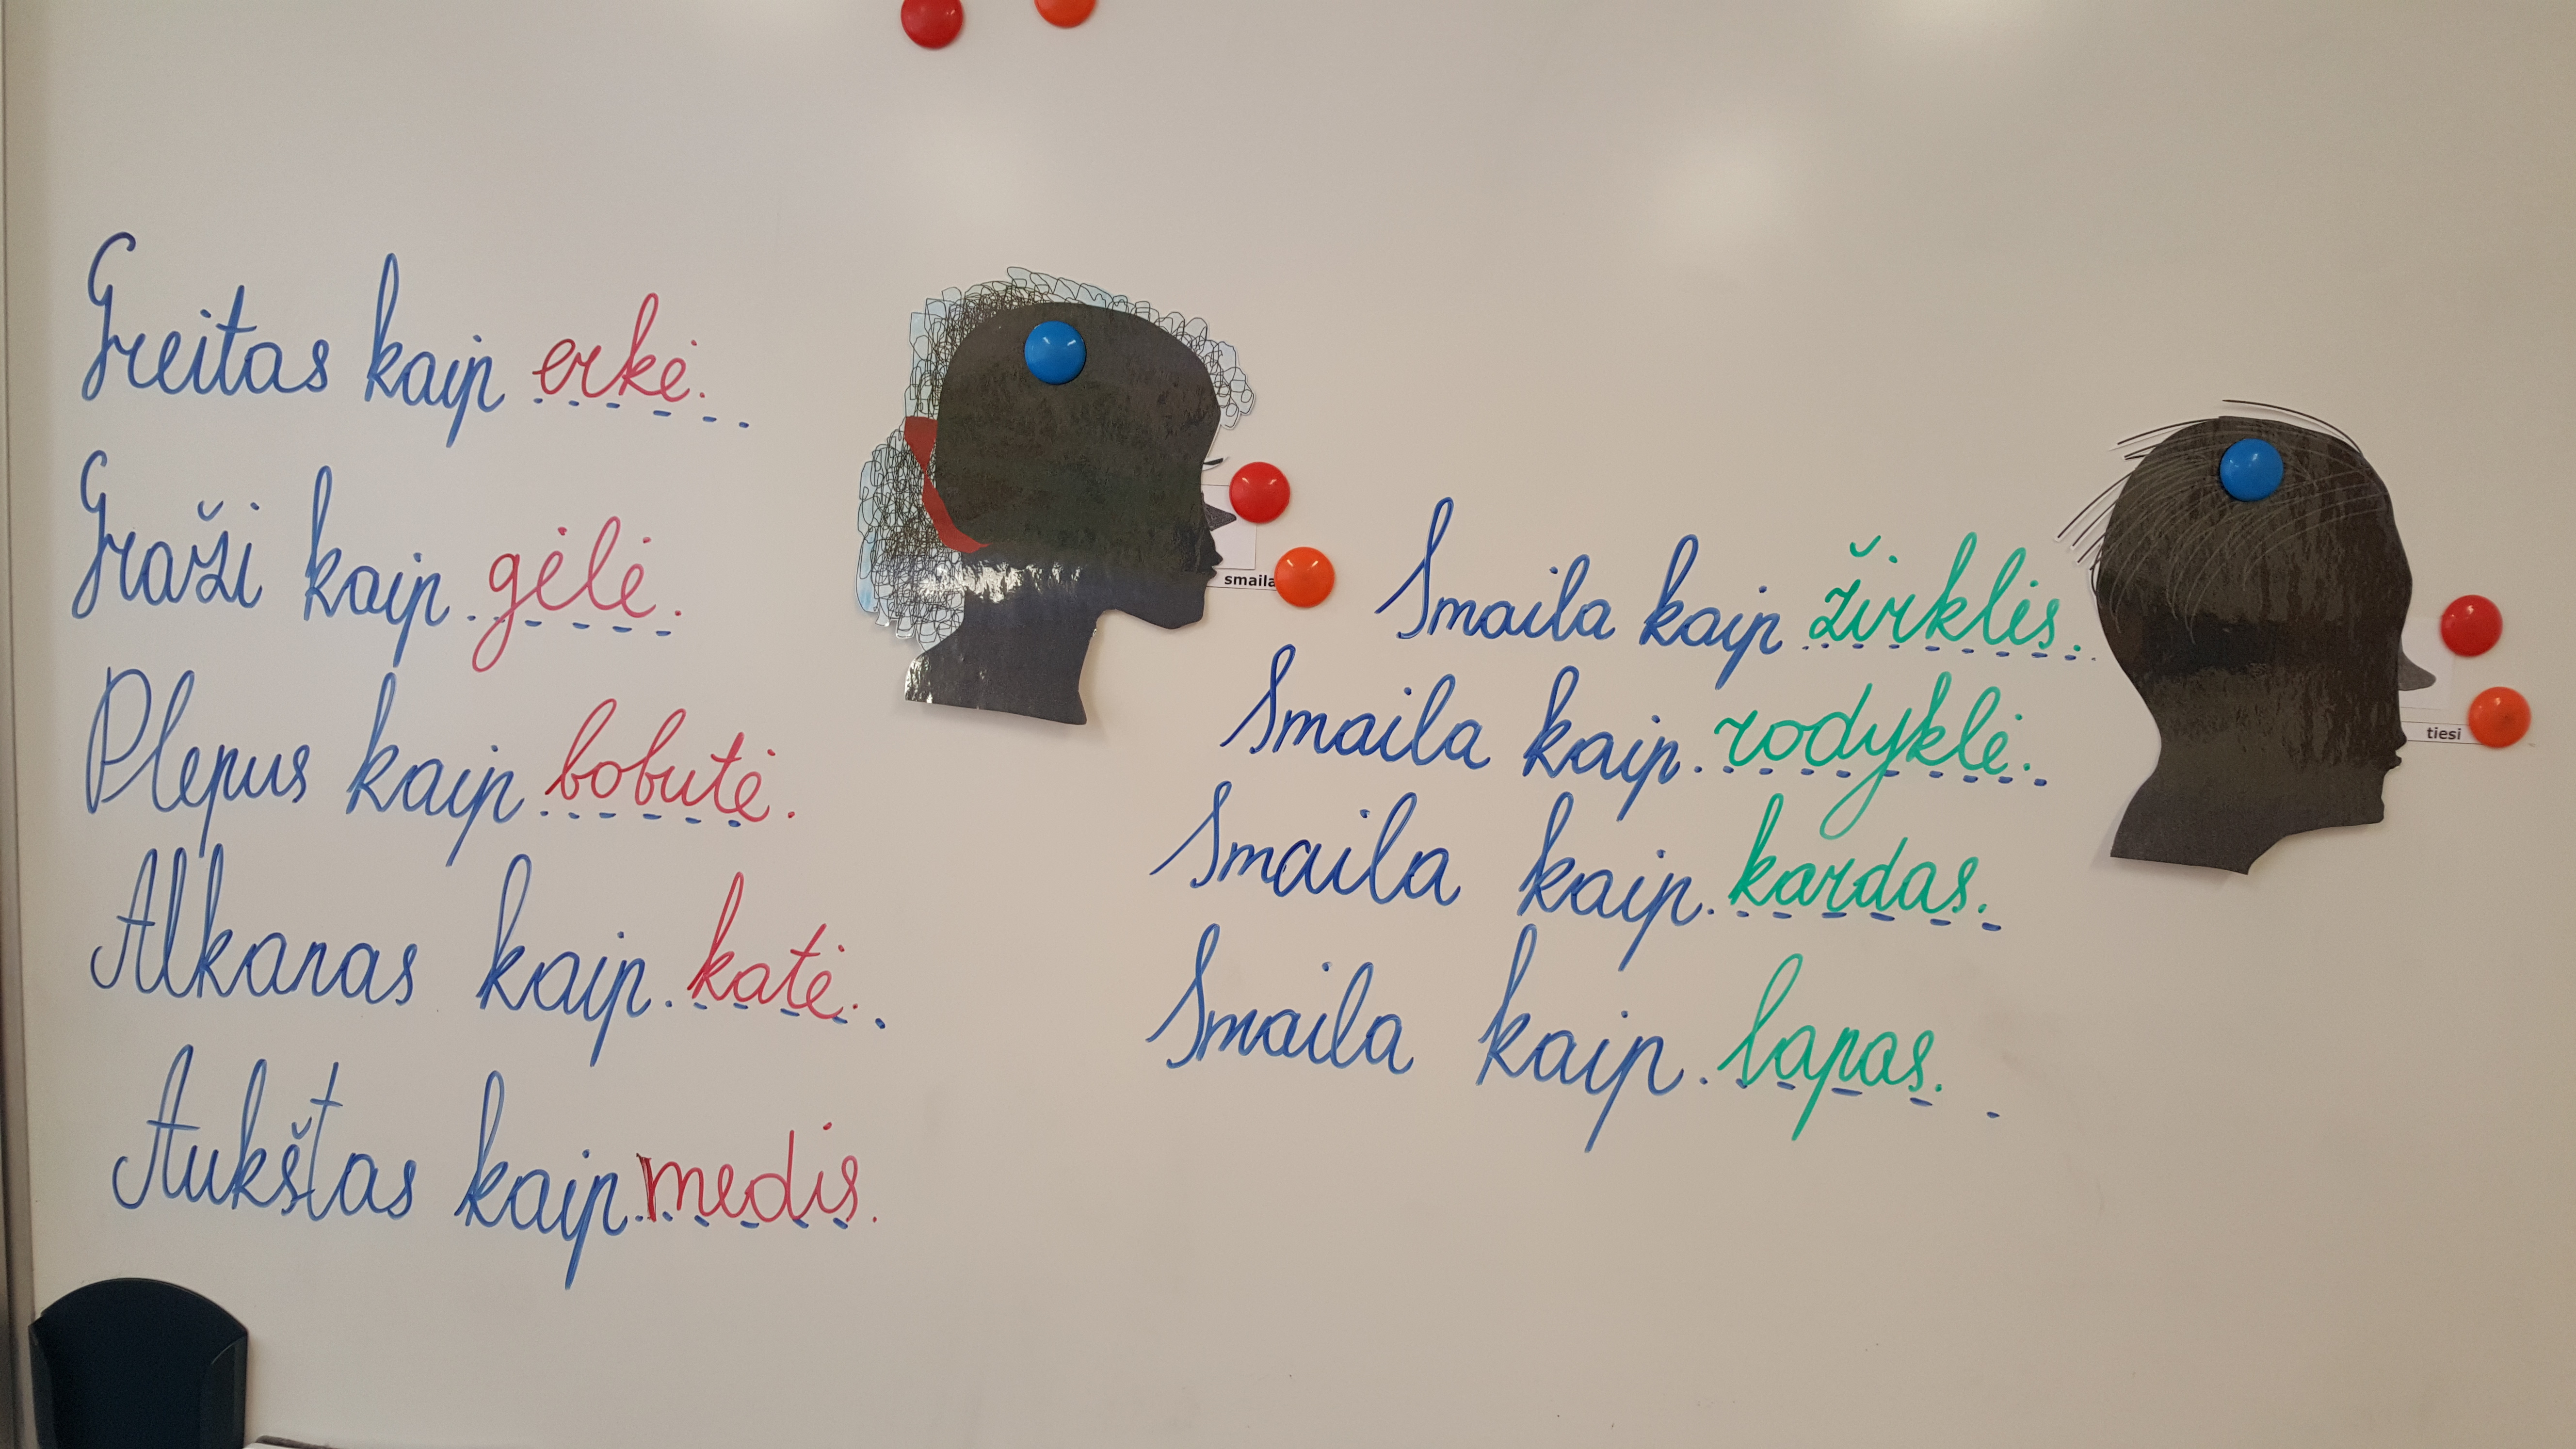 Greitas kaip erkė.
Graži kaip gėlė.
Plepus kaip bobutė.
Alkanas kaip katė.
Aukštas kaip medis.
smaila
Smaila kaip žirklės.
Smaila kaip rodyklė.
Smaila kaip kardas.
Smaila kaip lapas.
tiesi